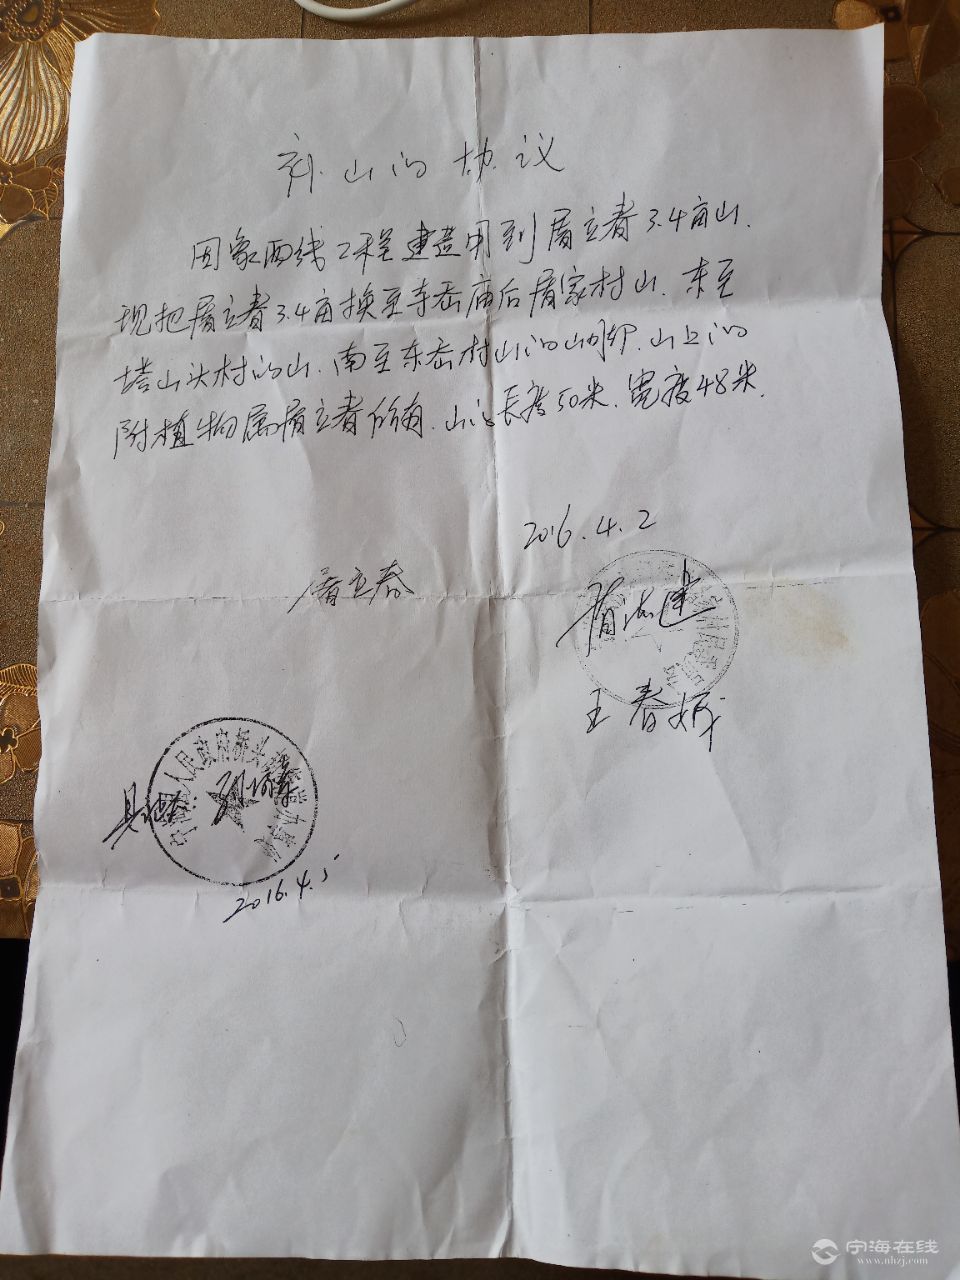 山的协议
因象西线工程建造用到屠立春3.4亩山.
现把屠立春3.4亩换至东岳庙后屠家村山.东至
塔山头村的山.南至东岳村山的山脚.山上的
附植物属屠立春所有.山的長度50米.宽度48米.
2016.4.2
屠立春
王春城
人民政府桥头胡街道办事处
2016.4.5
宁海在线
www.nhzj.com